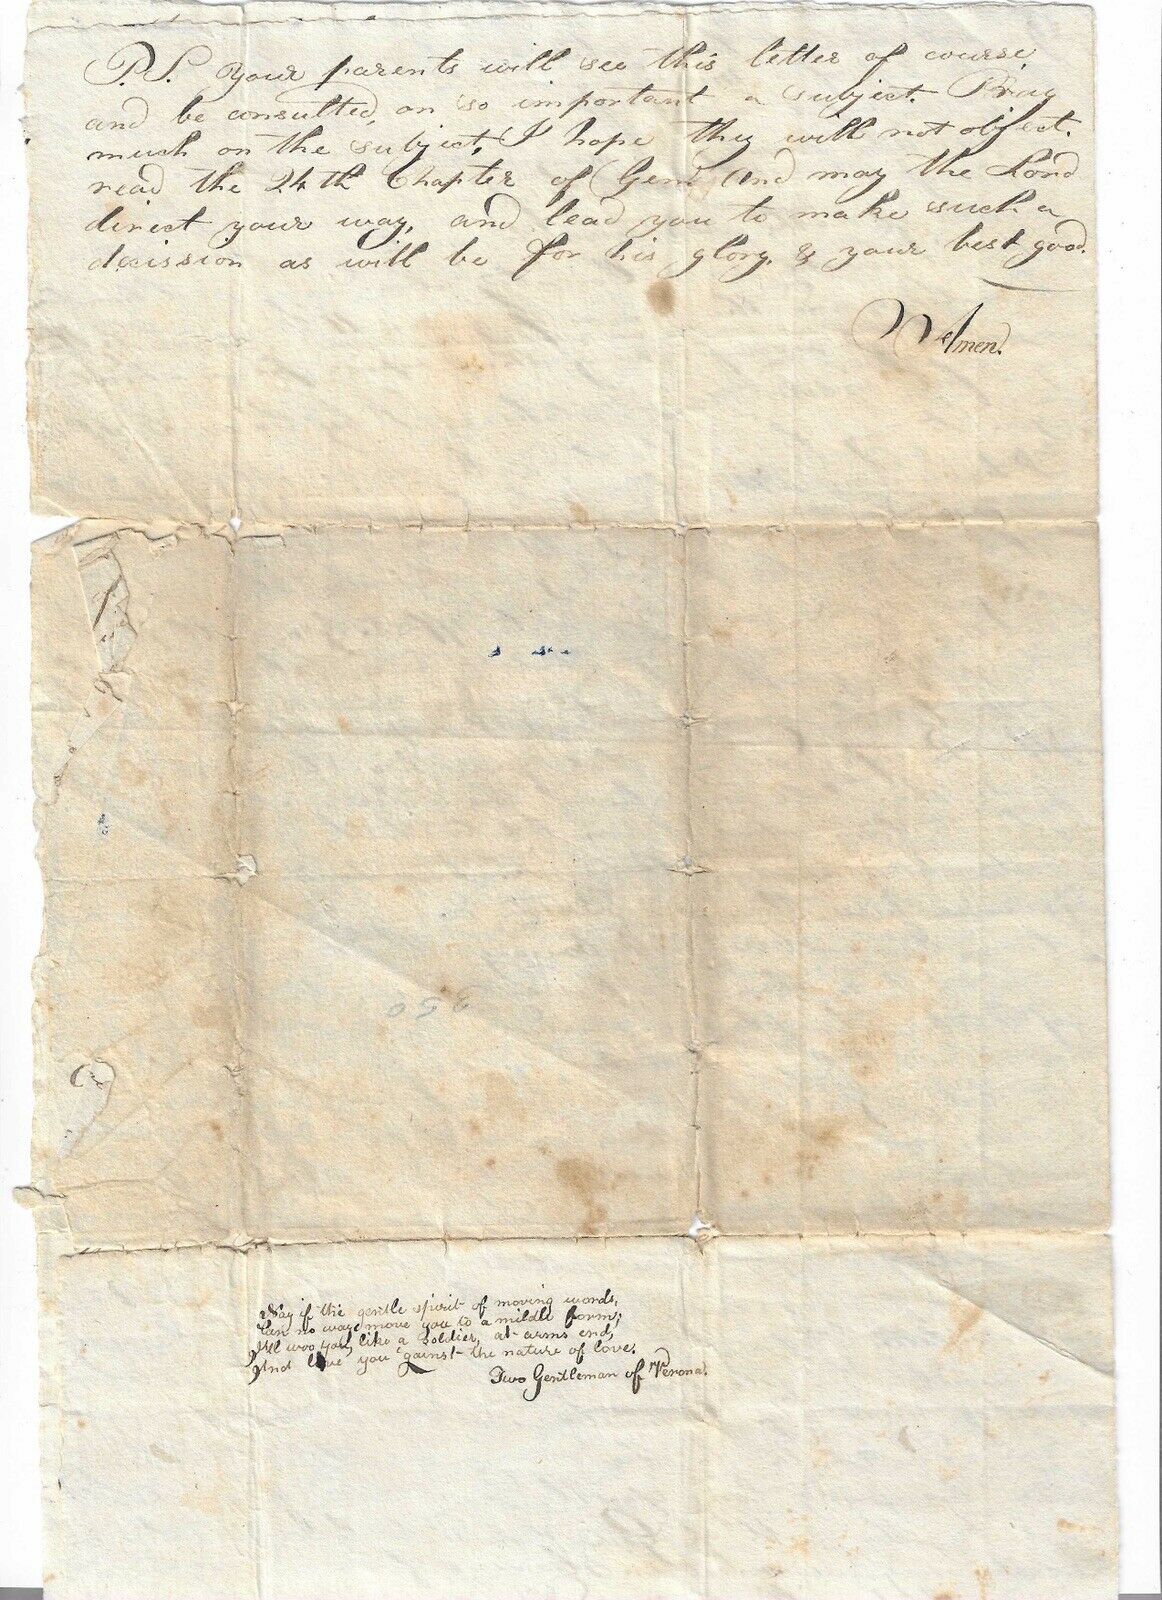 P.S. Your parents will see this letter of course,
and be consulted, on so important a subject. Pray
much on the subject, I hope they will not object.
read the 24th Chapter of Gen. And may the Lord
direct your way, and lead you to make such a
decission as will be for his glory, & your best good.
350
Nay if the gentle spirit of moving words,
Can no way move you to a milde form;
I'll woo you, like a Soldier, at arms end,
And love you 'gainst the nature of love.
Two Gentleman of Verona.